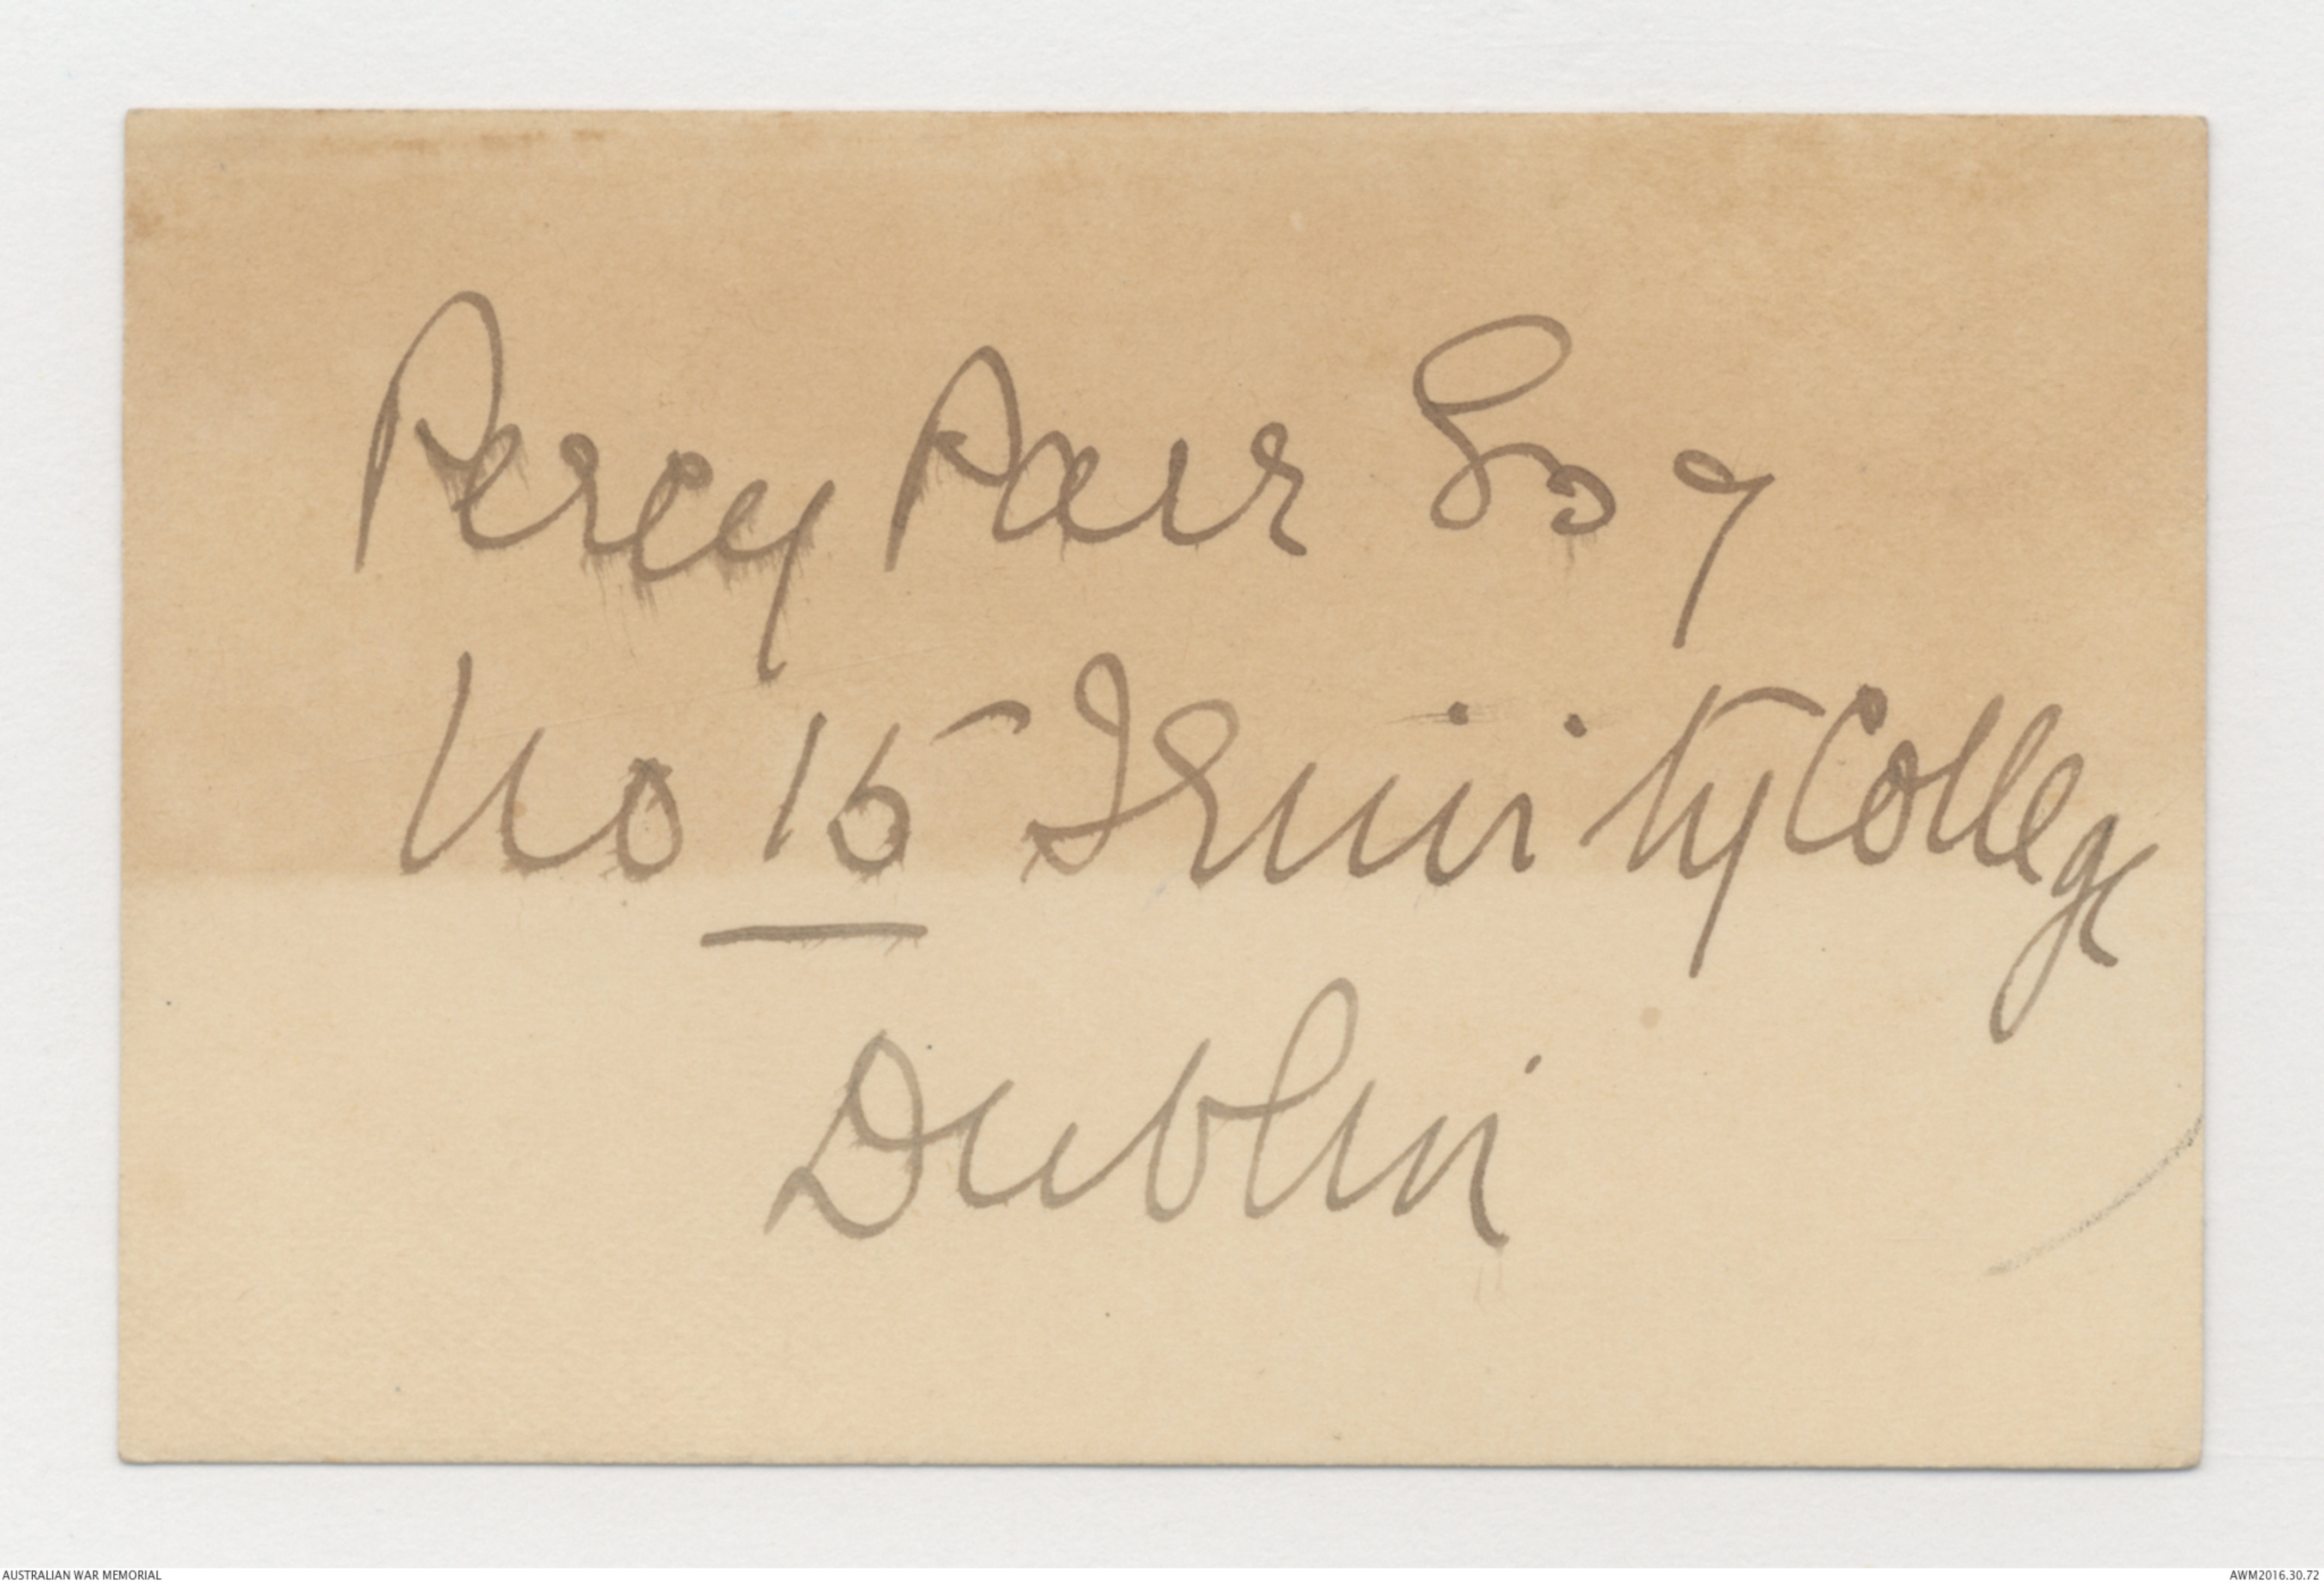 Percy Parr Esq
No 15 Trinity College
Dublin
AUSTRALIAN WAR MEMORIAL
AWM2016.30.72